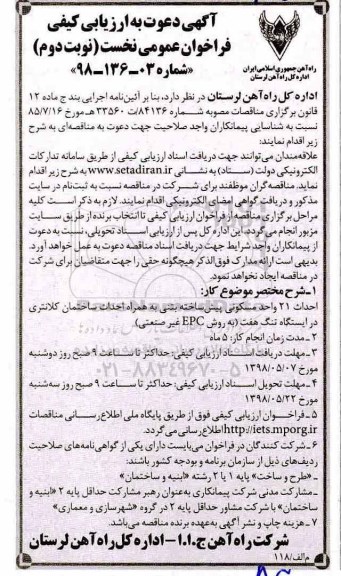 آگهی دعوت به ارزیابی کیفی
فراخوان عمومی نخست (نوبت دوم)
«شماره ۰۳-۱۳۶-۹۸»
راه آهن جمهوری اسلامی ایران
اداره کل راه آهن لرستان
اداره کل راه‌آهن لرستان در نظر دارد، بنا بر آئین‌نامه اجرایی بند ج ماده ۱۲
قانون برگزاری مناقصات مصوبه شماره ۸۴۱۳۶/ت ۳۳۵۶۰ هـ مورخ ۸۵/۷/۱۶
نسبت به شناسایی پیمانکاران واجد صلاحیت جهت دعوت به مناقصه‌ای به شرح
زیر اقدام نمایند:
علاقه‌مندان می‌توانند جهت دریافت اسناد ارزیابی کیفی از طریق سامانه تدارکات
الکترونیکی دولت (ستاد) به نشانی www.setadiran.ir به شرح زیر اقدام
نماید. مناقصه‌گران موظفند برای شرکت در مناقصه نسبت به ثبت‌نام در سایت
مذکور و دریافت گواهی امضای الکترونیکی اقدام نمایند. لازم به ذکر است کلیه
مراحل برگزاری مناقصه از فراخوان ارزیابی کیفی تا انتخاب برنده از طریق سایت
مزبور انجام می‌گردد. این اداره کل پس از ارزیابی اسناد تحویلی، نسبت به دعوت
از پیمانکاران واجد شرایط جهت دریافت اسناد مناقصه دعوت به عمل خواهد آورد.
بدیهی است ارائه مدارک فوق‌الذکر هیچگونه حقی را جهت متقاضیان برای شرکت
در مناقصه ایجاد نخواهد نمود.
۱ـ شرح مختصر موضوع کار:
احداث ۲۱ واحد مسکونی پیش‌ساخته بتنی به همراه احداث ساختمان کلانتری
در ایستگاه تنگ هفت (به روش EPC غیر صنعتی)
۲ـ مدت زمان انجام کار: ۵ ماه
۳ـ مهلت دریافت اسناد ارزیابی کیفی: حداکثر تا ساعت ۹ صبح روز دوشنبه
مورخ ۱۳۹۸/۰۵/۰۷
۴ـ مهلت تحویل اسناد ارزیابی کیفی: حداکثر تا ساعت ۹ صبح روز سه‌شنبه
مورخ ۱۳۹۸/۰۵/۲۲
۵ـ فراخوان ارزیابی کیفی فوق از طریق پایگاه ملی اطلاع رسانی مناقصات
http://iets.mporg.ir اطلاع رسانی می‌گردد.
۶ـ شرکت کنندگان در فراخوان می‌بایست دارای یکی از گواهی‌نامه‌های صلاحیت
ردیف‌های ذیل از سازمان برنامه و بودجه کشور باشند:
ـ «طرح و ساخت» پایه ۱ یا ۲ رشته «ابنیه و ساختمان»
ـ مشارکت مدنی شرکت پیمانکاری به‌عنوان رهبر مشارکت حداقل پایه ۲ «ابنیه و
ساختمان» با شرکت مشاور حداقل پایه ۲ در گروه «شهرسازی و معماری»
۷ـ هزینه چاپ و نشر آگهی به‌عهده برنده مناقصه می‌باشد.
شرکت راه‌آهن ج.ا.ا - اداره کل راه‌آهن لرستان
م‌الف/۱۱۸
۰۲۱-۸۸۳۴۹۶۷۰-۵